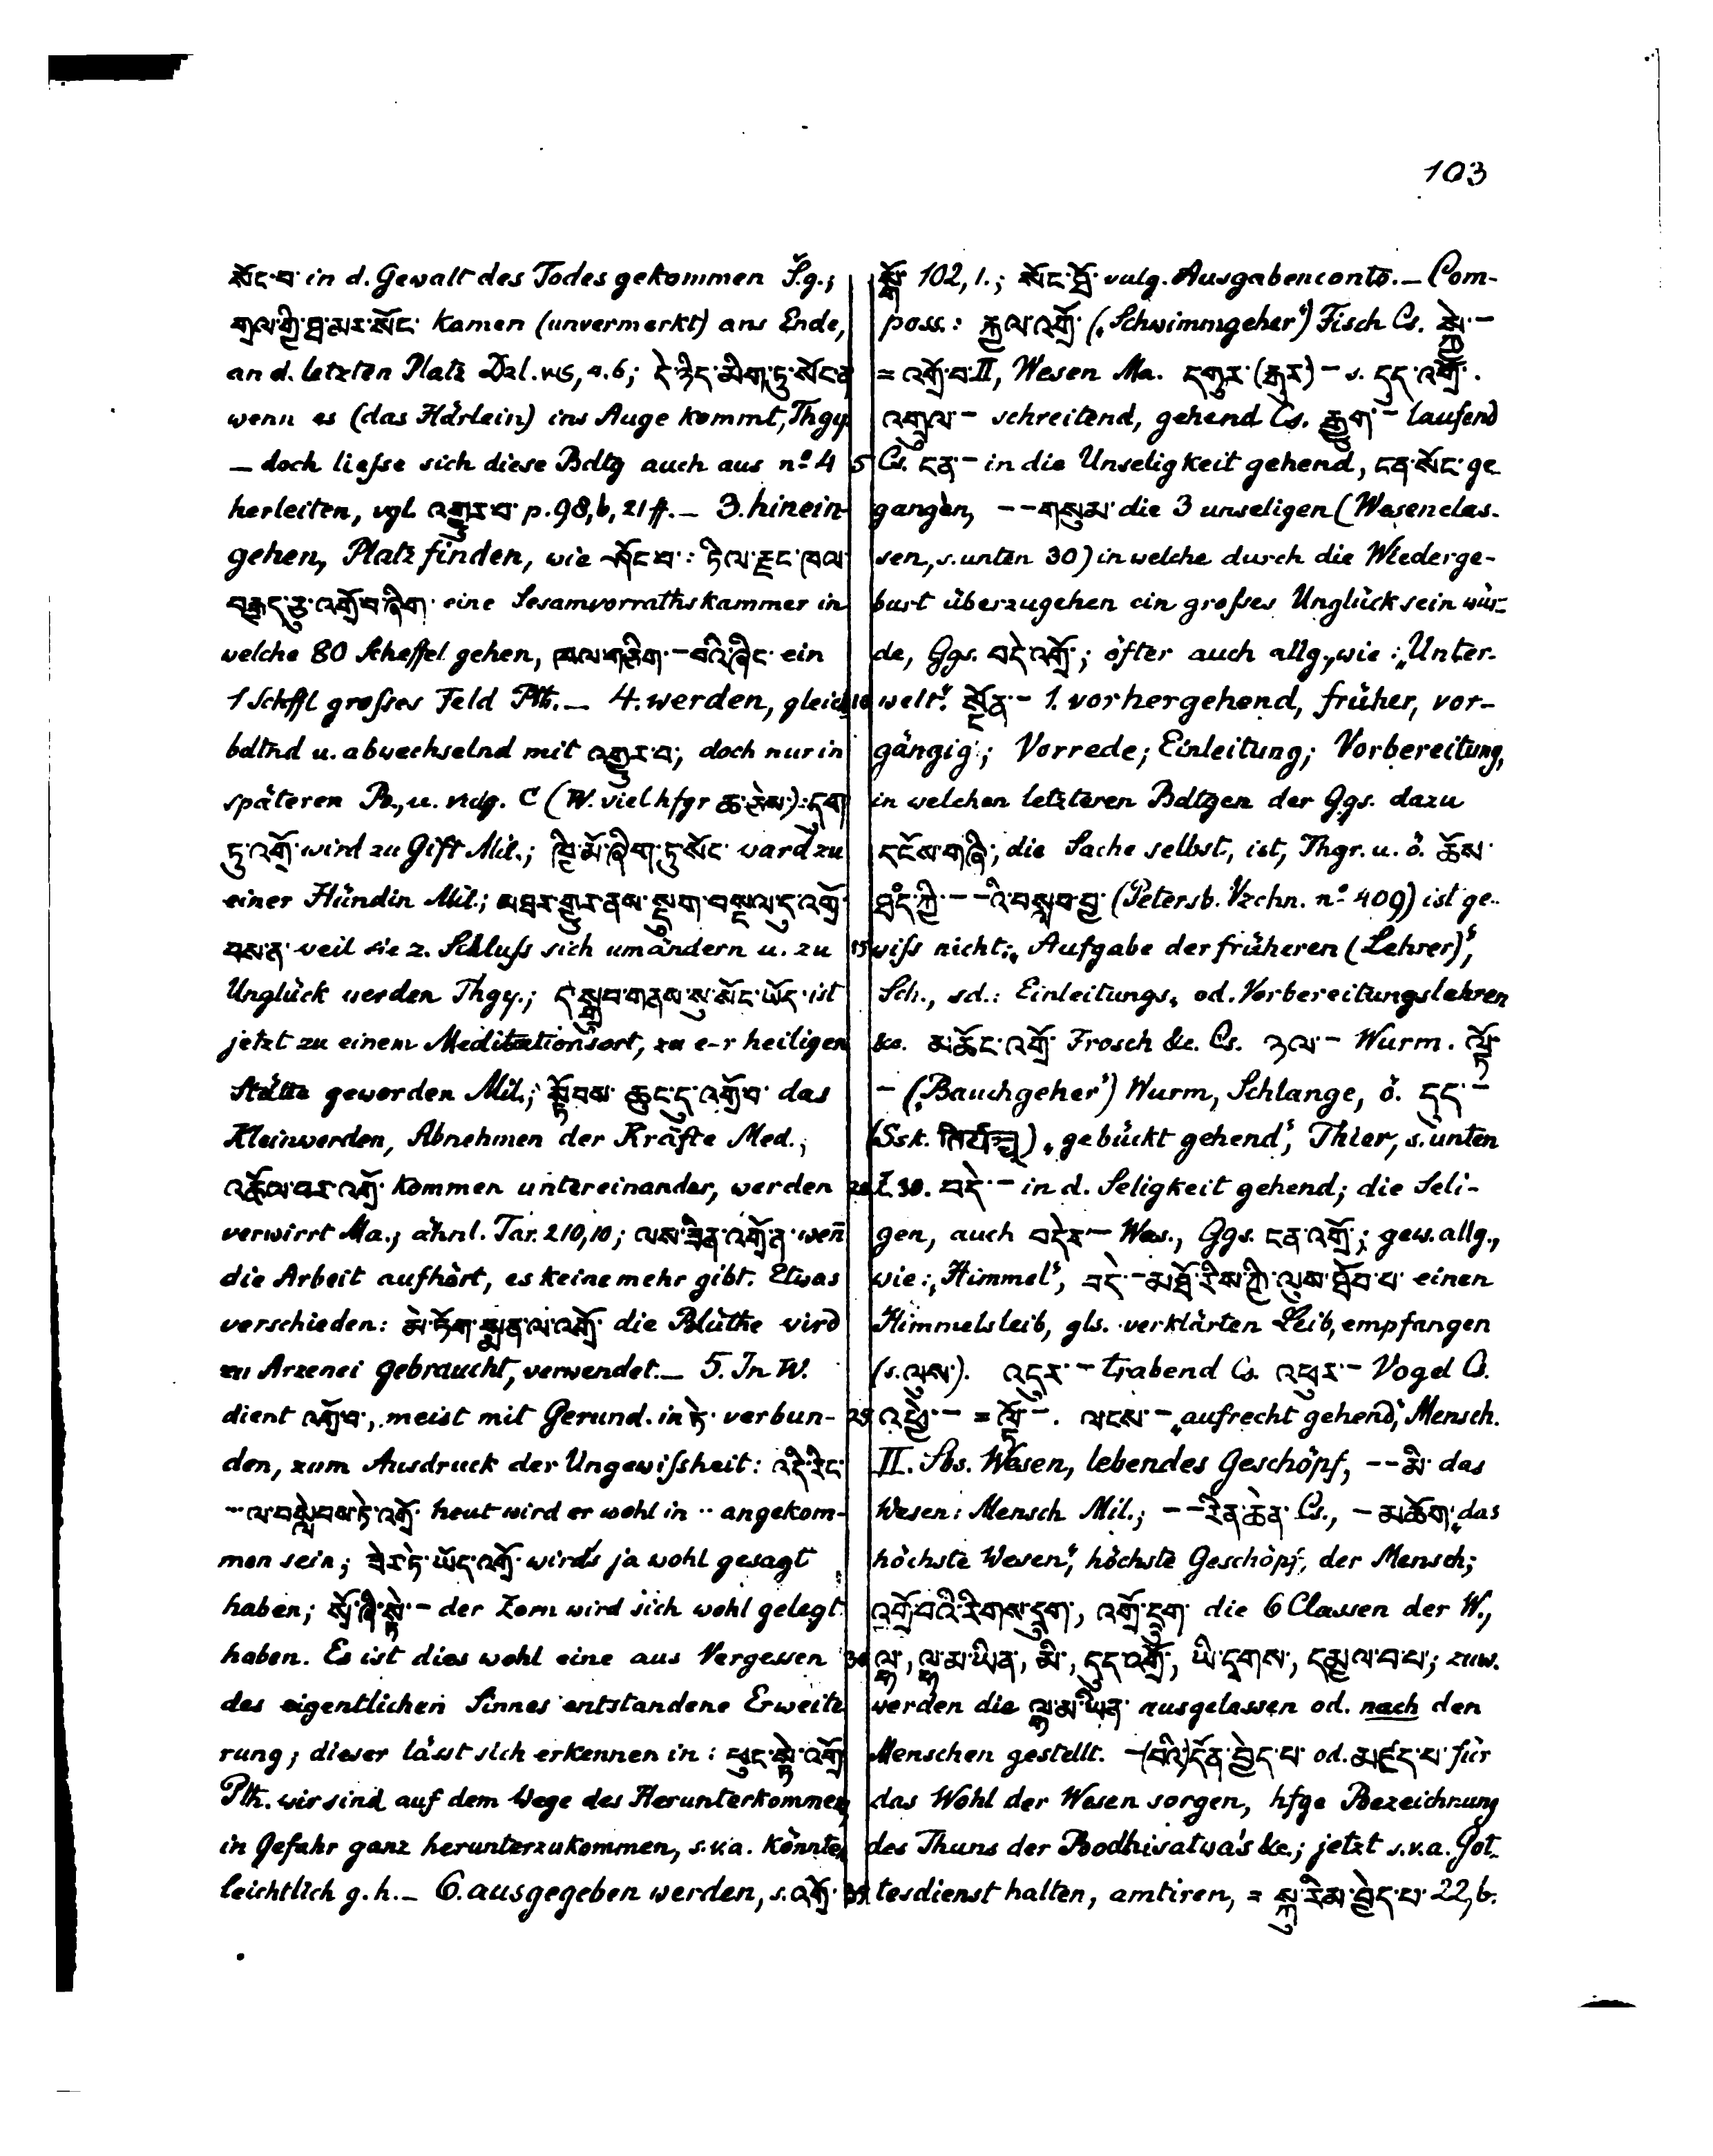 103
སོང་བ་ in d. Gewalt des Todes gekommen S̆.g.;
གྲལ་གྱི་ཐ་མར་སོང་ kamen (unvermerkt) ans Ende,
an d. letzten Platz Dzl. ༧༥, 6; དེ་ཉིད་མིག་ཏུ་སོང་ན་
wenn es (das Härlein) ins Auge kommt, Thgy.
– doch liesse sich diese Bdtg auch aus nº 4
herleiten, vgl. འགྱུར་བ་ p. 98, b, 21 ff. – 3. hinein-
gehen, Platz finden, wie ཤོང་བ་: ཏིལ་རྫང་ཁལ་
བརྒྱད་ཅུ་འགྲོ་བ་ཞིག་ eine Sesamvorrathskammer in
welche 80 Scheffel gehen, ཁལ་གཅིག་ – བའི་ཞིང་ ein
1 Schffl grosses Feld Pth. – 4. werden, gleich
bdtnd u. abwechselnd mit འགྱུར་བ་; doch nur in
späteren B., u. vulg. C (W. viel hfgr ཆ་ཅེས་): དུག་
ཏུ་འགྲོ་ wird zu Gift Mil.; ཁྱི་མོ་ཞིག་ཏུ་སོང་ ward zu
einer Hündin Mil.; མཐར་གྱུར་ནས་སྡུག་བསྔལ་དུ་འགྲོ་
བས་ན་ weil sie z. Schluss sich umändern u. zu
Unglück werden Thgy.; ད་སྒྲུབ་གནས་སུ་སོང་ཡོད་ ist
jetzt zu einem Meditationsort, zu e-r heiligen
Stätte geworden Mil.; སྟོབས་ཆུང་དུ་འགྲོ་བ་ das
Kleinwerden, Abnehmen der Kräfte Med.;
འཆོལ་བར་འགྲོ་ kommen untereinander, werden
verwirrt Ma.; ähnl. Tar. 210,10; ལས་ཟིན་འགྲོ་ན་ wen̄
die Arbeit aufhört, es keine mehr gibt. Etwas
verschieden: མེ་ཏོག་སྨན་ལ་འགྲོ་ die Blüthe wird
zu Arzenei gebraucht, verwendet. – 5. In W.
dient འགྲོ་བ་, meist mit Gerund. in ཏེ་ verbun-
den, zum Ausdruck der Ungewissheit: འདི་རིང་
·· ལ་བསླེབས་ཏེ་འགྲོ་ heut wird er wohl in ·· angekom-
men sein; ཟེར་ཏེ་ཡོད་འགྲོ་ wird's ja wohl gesagt
haben; སྲོ་ཞི་སྟེ་ – der Zorn wird sich wohl gelegt
haben. Es ist dies wohl eine aus Vergessen
des eigentlichen Sinnes entstandene Erweite
rung; dieser lässt sich erkennen in: ཕུང་སྟེ་འགྲོ་
Pth. wir sind auf dem Wege des Herunterkommen,
in Gefahr ganz herunterzukommen, s.v.a. könnte,
leichtlich g. h. – 6. ausgegeben werden, s. འགྲོ་
སྒོ་ 102, 1.; སོང་ཐོ་ vulg. Ausgabenconto. – Com-
poss.: རྐྱལ་འགྲོ་ („Schwimmgeher“) Fisch Cs. –
= འགྲོ་བ་ II, Wesen Ma. དགུར་(རྒུར་) – s. དུད་འགྲོ་.
འགྲུལ་ – schreitend, gehend Cs. རྒྱུག་ – laufend
5 Cs. ངན་ – in die Unseligkeit gehend, ངན་སོང་ ge
gangen, – – གསུམ་ die 3 unseligen (Wesenclas-
sen, s. unten 30) in welche durch die Wiederge-
burt überzugehen ein grosses Unglück sein wür-
de, Ggs. བདེ་འགྲོ་; öfter auch allg., wie: „Unter-
10 welt“. སྔོན་ – 1. vorhergehend, früher, vor-
gängig; Vorrede; Einleitung; Vorbereitung,
in welchen letzteren Bdtgen der Ggs. dazu
དངོས་གཞི་, die Sache selbst, ist, Thgr. u. ö. ཆོས་
ཁྲིད་ཀྱི་ – – འི་བསླབ་བྱ་ (Petersb. Vzchn. nº 409) ist ge-
15 wiss nicht: „Aufgabe der früheren (Lehrer)“,
Sch., sd.: Einleitungs- od. Vorbereitungslehren
&c. མ་ཆོང་འགྲོ་ Frosch &c. Cs. ཉལ་ – Wurm. ལྟོ་
– („Bauchgeher“) Wurm, Schlange, ö. དུད་ –
(Ssk. तिर्यञ्च्) „gebückt gehend“, Thier, s. unten
20 Z. 30. བདེ་ – in d. Seligkeit gehend; die Seli-
gen, auch བདེར་ – Was., Ggs. ངན་འགྲོ་; gew. allg.,
wie: „Himmel“, བདེ་ – མཐོ་རིས་ཀྱི་ལུས་ཐོབ་པ་ einen
Himmelsleib, gls. verklärten Leib, empfangen
(s. ལུས་). འདུར་ – trabend Cs. འཕུར་ – Vogel Cs.
25 འཕྱེ་ – = ལྟོ་ –. ལངས་ – „aufrecht gehend“, Mensch.
II. Sbs. Wesen, lebendes Geschöpf, – – མི་ das
Wesen: Mensch Mil.; – – རིན་ཆེན་ Cs., – མཆོག་ „das
höchste Wesen“, höchste Geschöpf, der Mensch;
འགྲོ་བའི་རིགས་དྲུག་, འགྲོ་དྲུག་ die 6 Classen der W.,
30 ལྷ་, ལྷ་མ་ཡིན་, མི་, དུད་འགྲོ་, ཡི་དྭགས་, དམྱལ་བ་པ་; zuw.
werden die ལྷ་མ་ཡིན་ ausgelassen od. nach den
Menschen gestellt. –(བའི་)དོན་བྱེད་པ་ od. མཛད་པ་ für
das Wohl der Wesen sorgen, hfge Bezeichnung
des Thuns der Bodhisatwa's &c.; jetzt s.v.a. Got-
35 tesdienst halten, amtiren, = སྐུ་རིམ་བྱེད་པ་ 22, b.